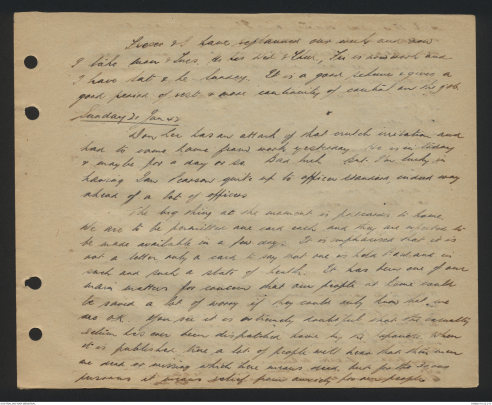 I have replanned our work and now
I take Mon & Tues, he has Wed & Thur, Fri is nowork and
I have Sat & he Sunday. It is a good scheme & gives a
good period of rest & more continuity of control on the job.
Sunday 21 Jun 42
Don Lee has an attack of that crutch irritation and
had to come home from work yesterday. He is in today
& maybe for a day or so. Bad luck but I'm lucky in
having Ian Pearson quite up to officer standard indeed way
ahead of a lot of officers
The big thing at the moment is postcards to home.
We are to be permitted one card each and they are expected to
be made available in a few days. It is emphasised that it is
not a letter only a card to say that one is held and in
such and such a state of health. It has been one of our
main matters for concern that our people at home could
be saved a lot of worry if they could only know that we
are OK. You see it is extremely doubtful that the casualty
return has ever been dispatched home by the Japanese. When
it is published there a lot of people will hear that their men
are dead or missing which here means dead, but for the
persons it means relief from anxiety for our people